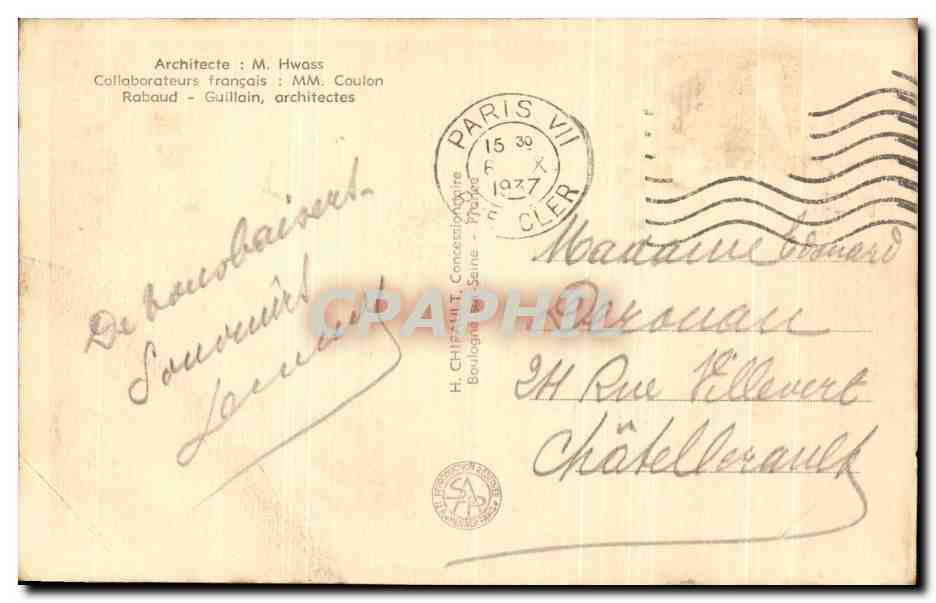 Architecte : M. Hwass
Collaborateurs français : MM. Coulon
Rabaud - Guillain, architectes
PARIS VII
15 30
6 X
1937
R. CLER
De nous baisers
Souvenirs
H. CHIPAULT, Concessionnaire
Boulogne-sur-Seine - France
CPAPHIL
Madame Edouard
Derouau
24 Rue Villevert
Châtellerault
SAPHO